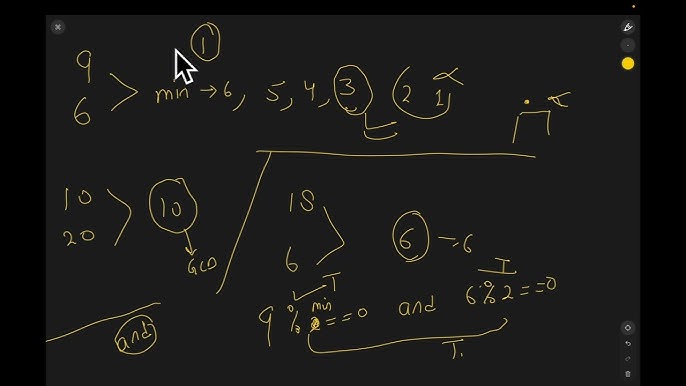 1
9
6
min → 6, 5, 4, 3 2 1
10
20
10
GCD
18
6
6 → 6
T
9 % min == 0 and 6 % 2 == 0
T
T.
and